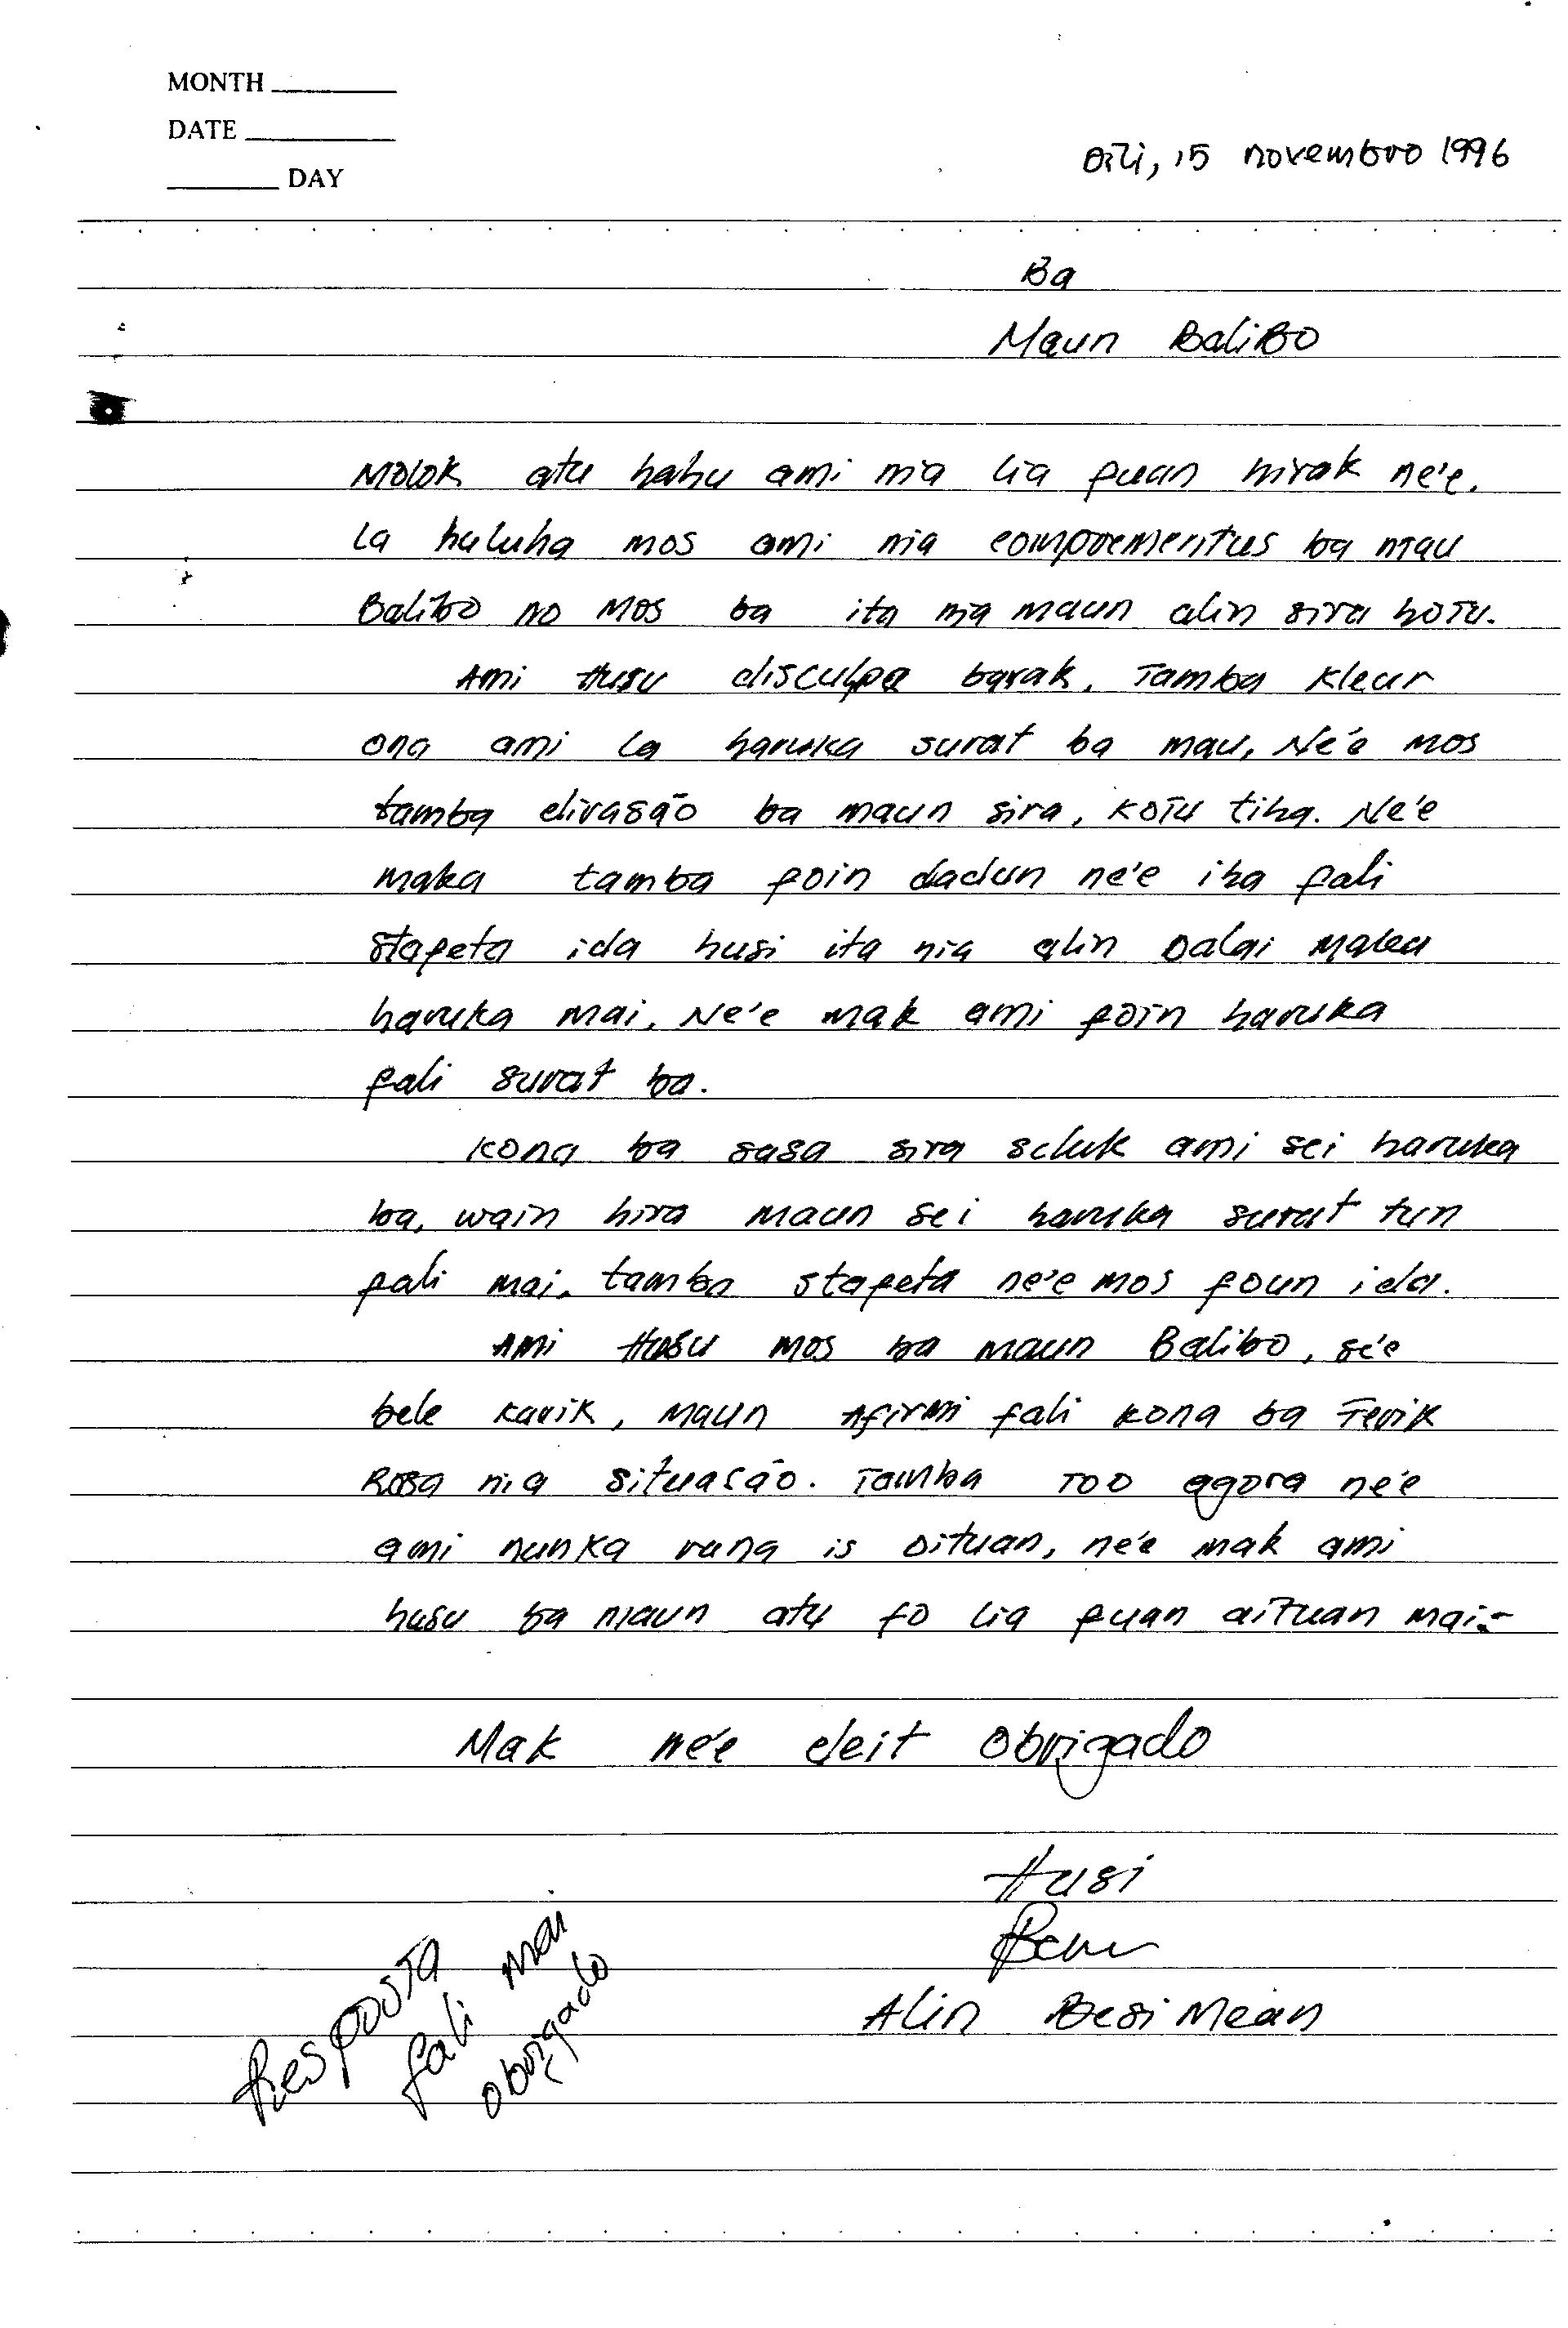 MONTH
DATE
DAY
Dili, 15 novembro 1996
Ba
Maun BaliBo
Molok atu hahu ami nia lia fuan hirak ne'e.
La haluha mos ami nia comprementus ba mau
Balibo no mos ba ita nia maun alin sira hotu.
Ami Husu disculpa barak, Tamba Kleur
ona ami la haruka surat ba mau, Ne'e mos
tamba ba maun sira, kotu tiha. Ne'e
maka tamba foin dadun ne'e iha fali
stafeta ida husi ita nia alin Dalai maka
haruka mai, Ne'e mak ami foin haruka
fali surat ba.
Kona ba sasa sira seluk ami sei haruka
ba, wain hira maun sei haruka surat tun
fali mai, tamba stafeta ne'e mos foun ida.
Ami Husu mos ba maun Balibo, se'e
bele karik, maun Afirmi fali kona ba Ferik
Rosa nia situasão. Tamba too agora ne'e
ami nunka rana is oituan, ne'e mak ami
husu ba maun atu fo lia fuan aituan mai.-
Mak ne'e deit obrigado
Husi
Alin Besi Mean
Resposta
fali mai
obrigado